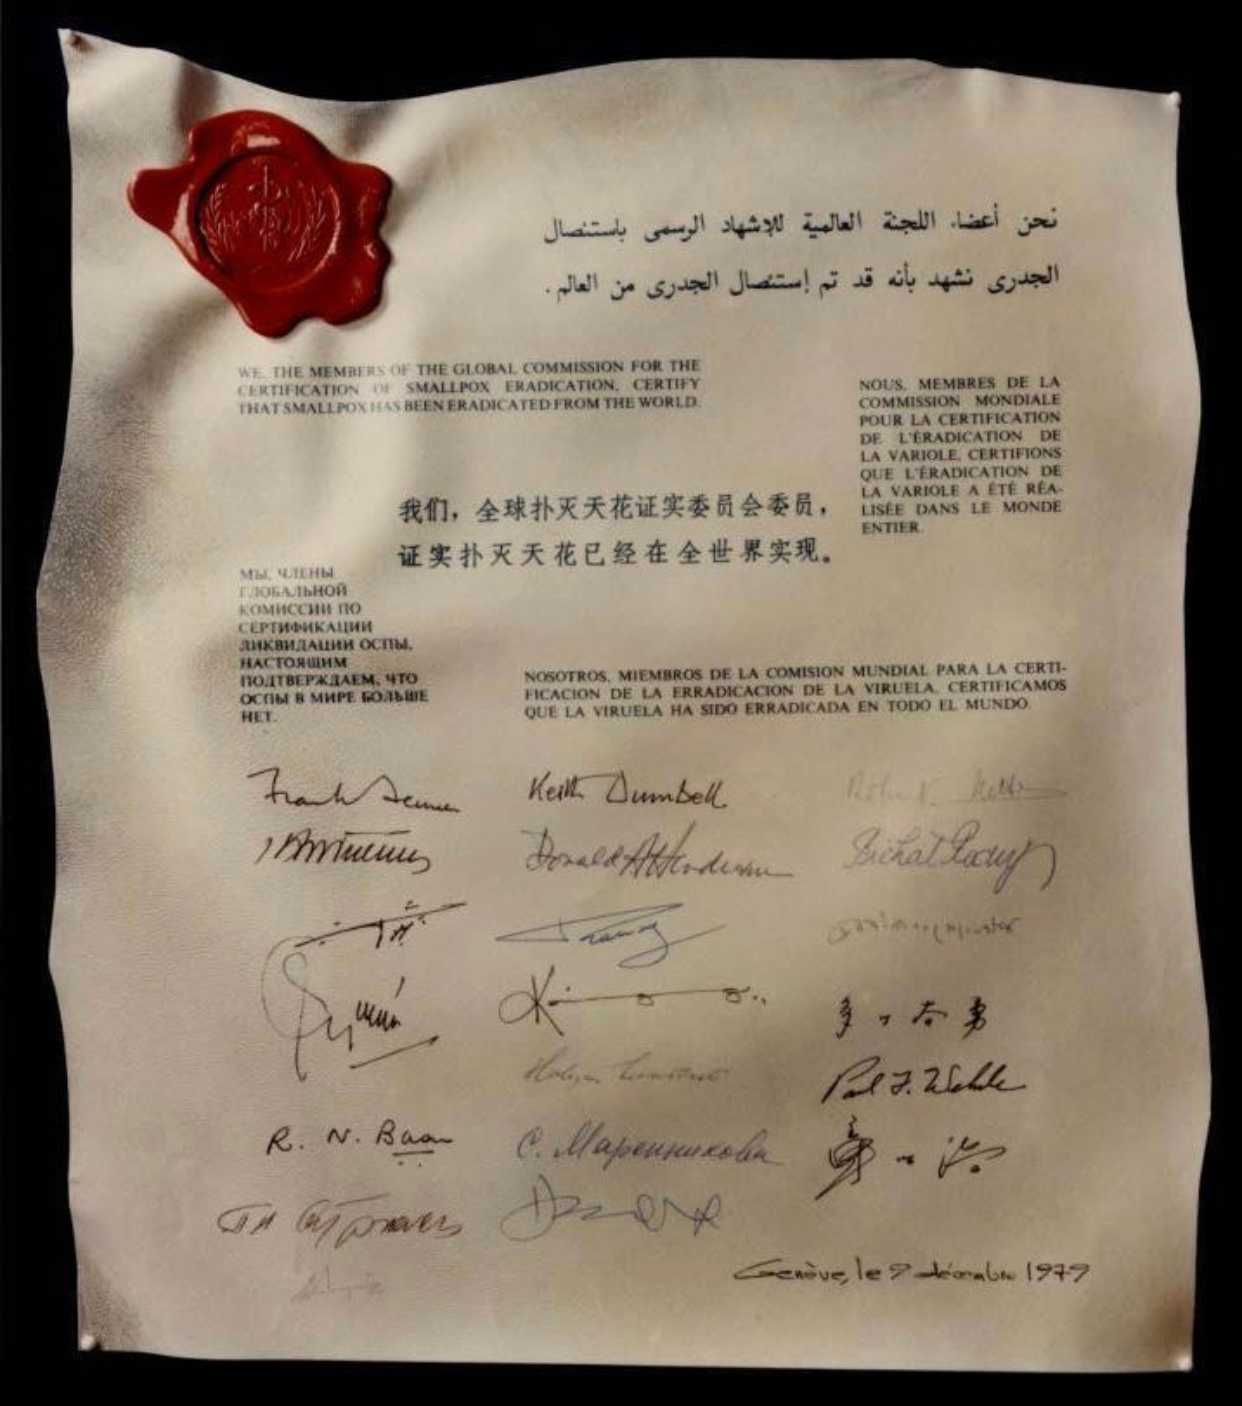 نحن أعضاء اللجنة العالمية للإشهاد الرسمى باستئصال
الجدرى نشهد بأنه قد تم إستئصال الجدرى من العالم .
WE, THE MEMBERS OF THE GLOBAL COMMISSION FOR THE
CERTIFICATION OF SMALLPOX ERADICATION, CERTIFY
THAT SMALLPOX HAS BEEN ERADICATED FROM THE WORLD.
NOUS, MEMBRES DE LA
COMMISSION MONDIALE
POUR LA CERTIFICATION
DE L'ÉRADICATION DE
LA VARIOLE, CERTIFIONS
QUE L'ÉRADICATION DE
LA VARIOLE A ÉTÉ RÉA-
LISÉE DANS LE MONDE
ENTIER.
我们，全球扑灭天花证实委员会委员，
证实扑灭天花已经在全世界实现。
МЫ, ЧЛЕНЫ
ГЛОБАЛЬНОЙ
КОМИССИИ ПО
СЕРТИФИКАЦИИ
ЛИКВИДАЦИИ ОСПЫ,
НАСТОЯЩИМ
ПОДТВЕРЖДАЕМ, ЧТО
ОСПЫ В МИРЕ БОЛЬШЕ
НЕТ.
NOSOTROS, MIEMBROS DE LA COMISION MUNDIAL PARA LA CERTI-
FICACION DE LA ERRADICACION DE LA VIRUELA, CERTIFICAMOS
QUE LA VIRUELA HA SIDO ERRADICADA EN TODO EL MUNDO.
Frank Fenner
Keith Dumbell
Donald A Henderson
R. N. Basu
С. Маренникова
Genève, le 9 décembre 1979